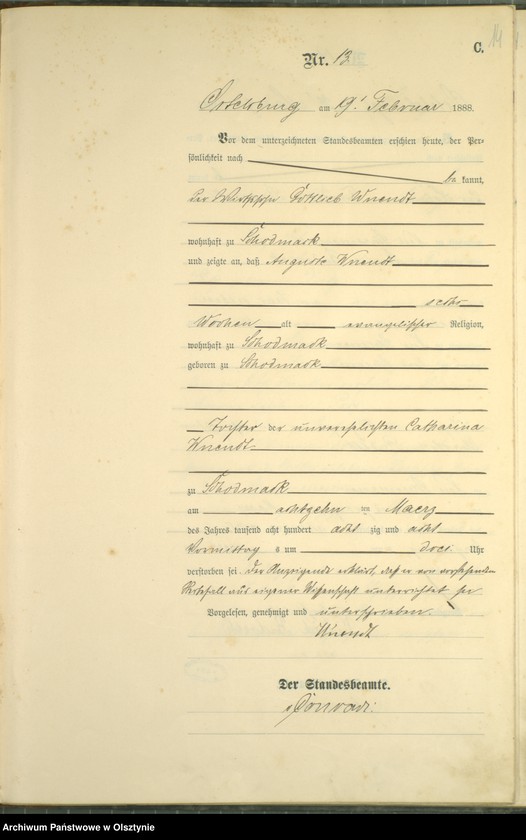 C.
Nr. 13
Ortelsburg am 19. Februar 1888.
Vor dem unterzeichneten Standesbeamten erschien heute, der Per-
sönlichkeit nach
be kannt,
der Gottlieb Knendt
wohnhaft zu Schodmack
und zeigte an, daß Auguste Knendt
sechs
Wochen alt evangelischer Religion,
wohnhaft zu Schodmack
geboren zu Schodmack
Tochter der unverehelichten Catharina
Knendt
zu Schodmack
am achtzehn ten
des Jahres tausend acht hundert acht zig und acht
Vormittag s um drei Uhr
verstorben sei. Der Anzeigende erklärt, daß er von vorstehendem
Sterbefall aus eigener Wissenschaft unterrichtet sei
Vorgelesen, genehmigt und unterschrieben.
Knendt
Der Standesbeamte.
Conradi.
Archiwum Państwowe w Olsztynie